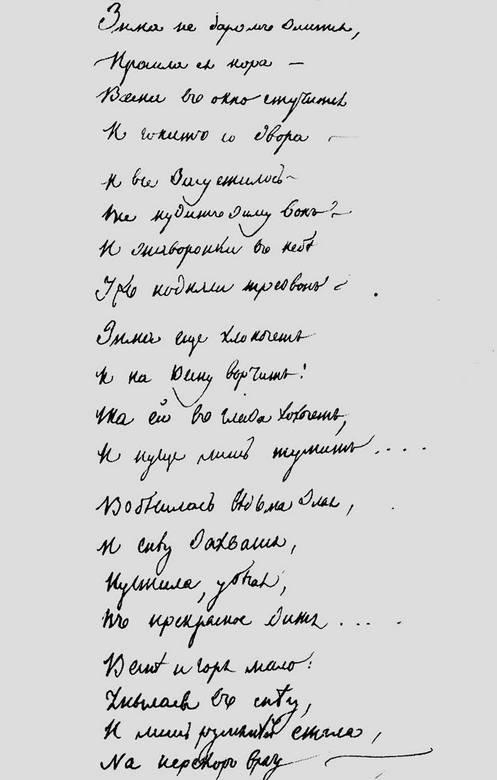 Зима не даромъ злится,
Прошла ея пора —
Весна въ окно стучится
И гонитъ со двора —
И все засуетилось —
Все нудитъ Зиму вонъ —
И жаворонки въ небѣ
Ужъ подняли трезвонъ —
Зима еще хлопочетъ
И на Весну ворчитъ!
Та ей въ глаза хохочетъ,
И пуще лишь шумитъ....
Взбѣсилась вѣдьма злая,
И снѣгу захватя,
Пустила, убѣгая,
Въ прекрасное дитя....
Веснѣ и горя мало:
Умылася въ снѣгу,
И лишь румянѣй стала,
На перекоръ врагу —